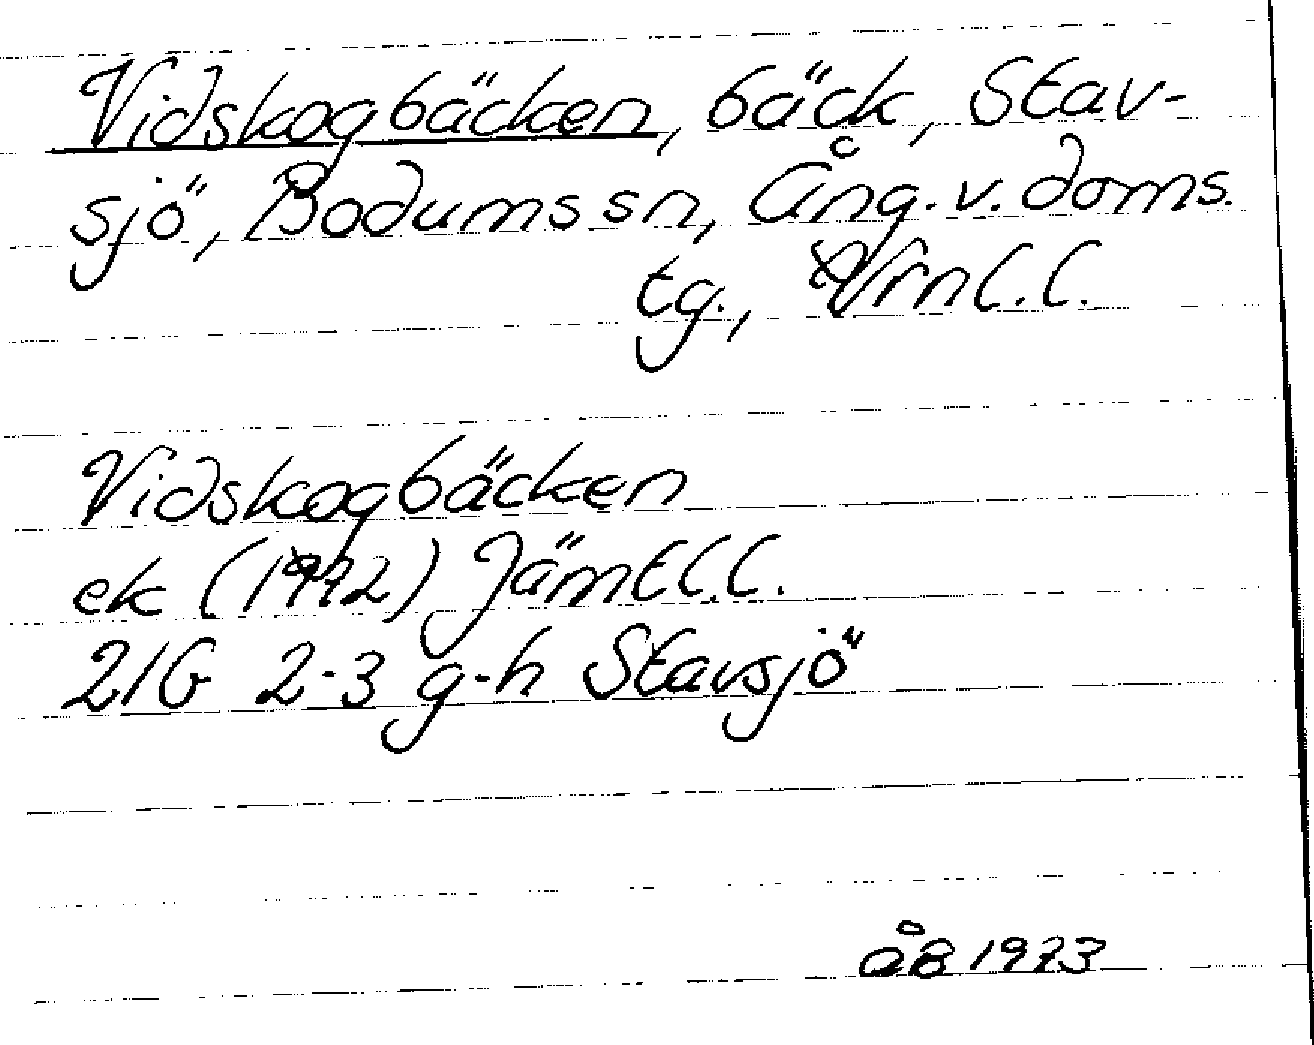 Vidskogbäcken, bäck, Stav-
sjö, Bodums sn, Ång. v. doms.
tg., Vrnl. l.
Vidskogbäcken
ek (1972) Jämtl. l.
21G 2-3 g-h Stavsjö
åB 1973